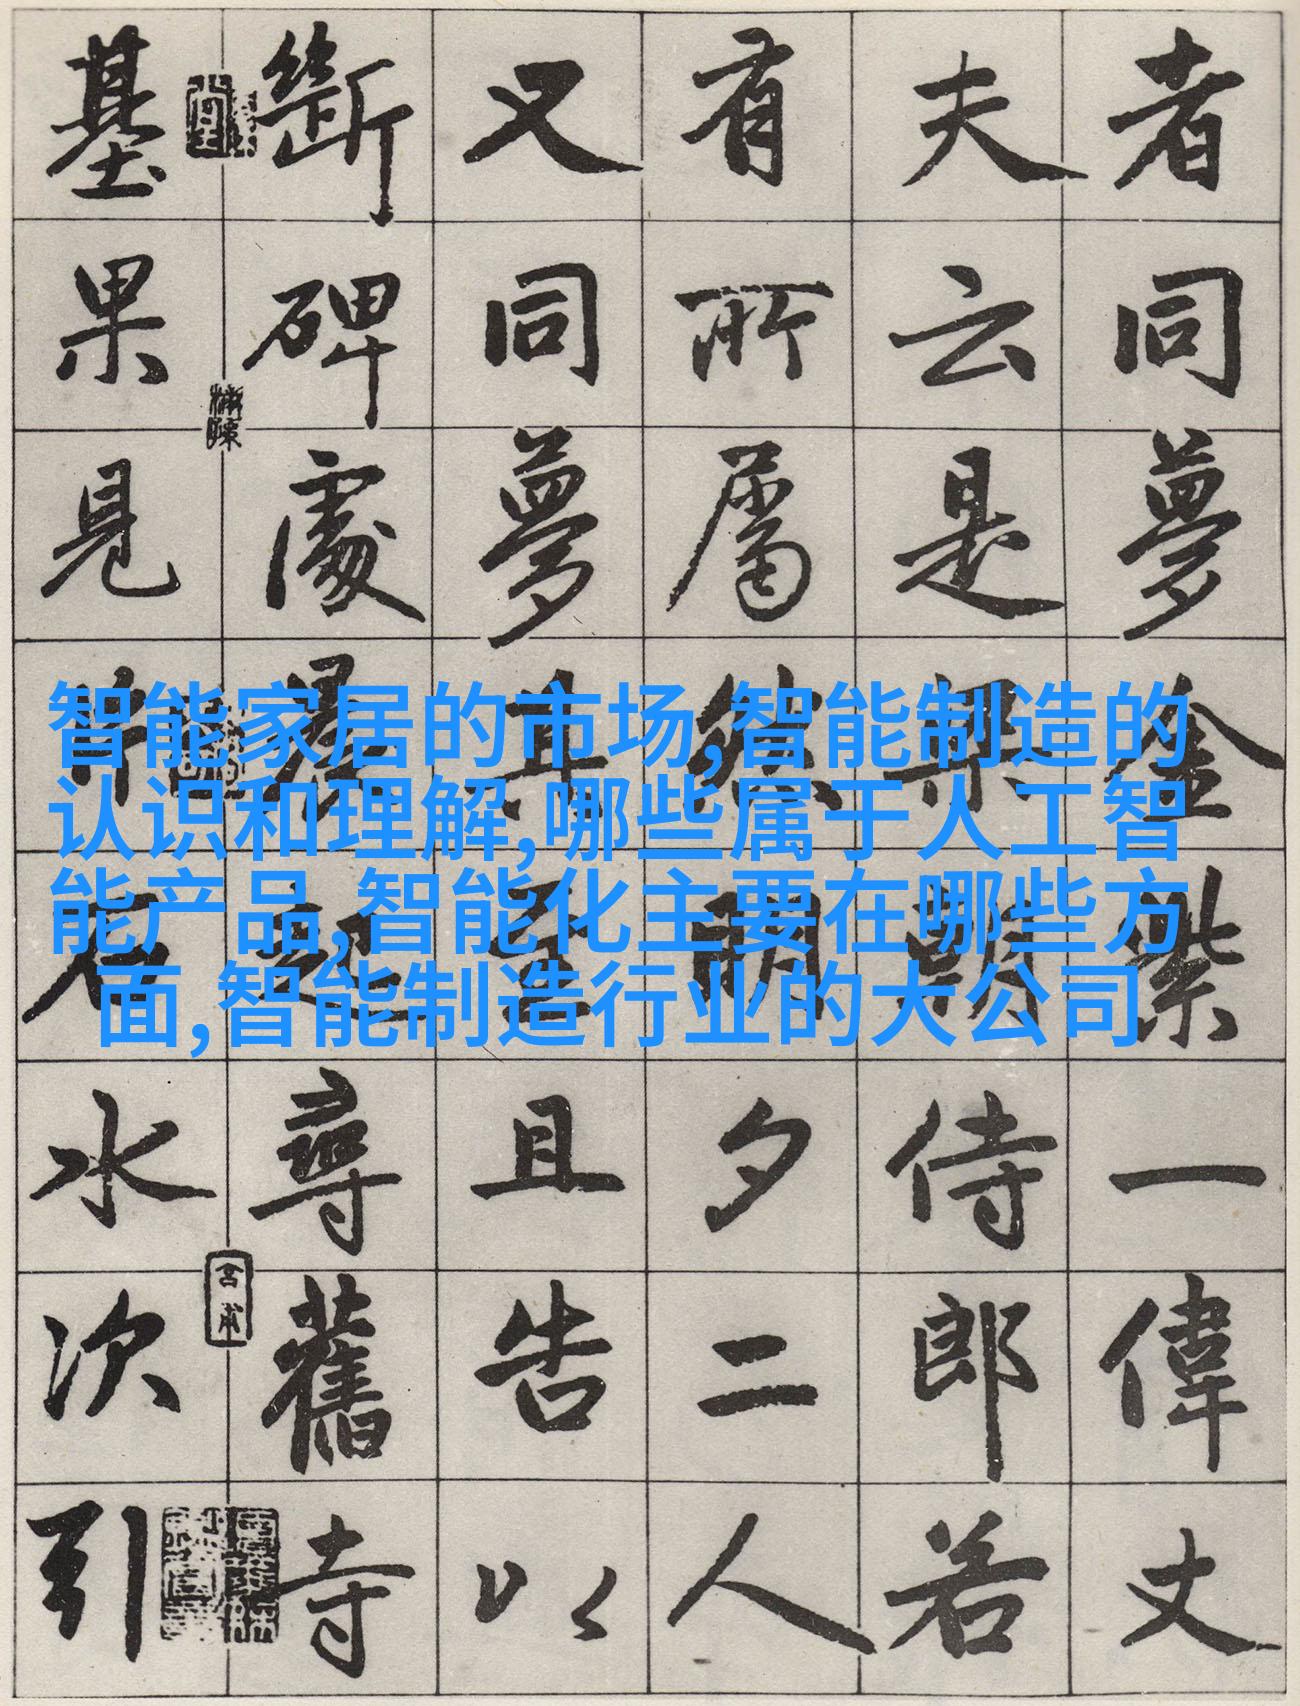 者同夢金紫一偉丈
夫云是朝侍郎若
有所屬然明夕二人
又同夢且告以
斷碑處晨起尋舊寺
基果見石水次引
智能家居的市场,智能制造的
认识和理解,哪些属于人工智
能产品,智能化主要在哪些方
面,智能制造行业的大公司